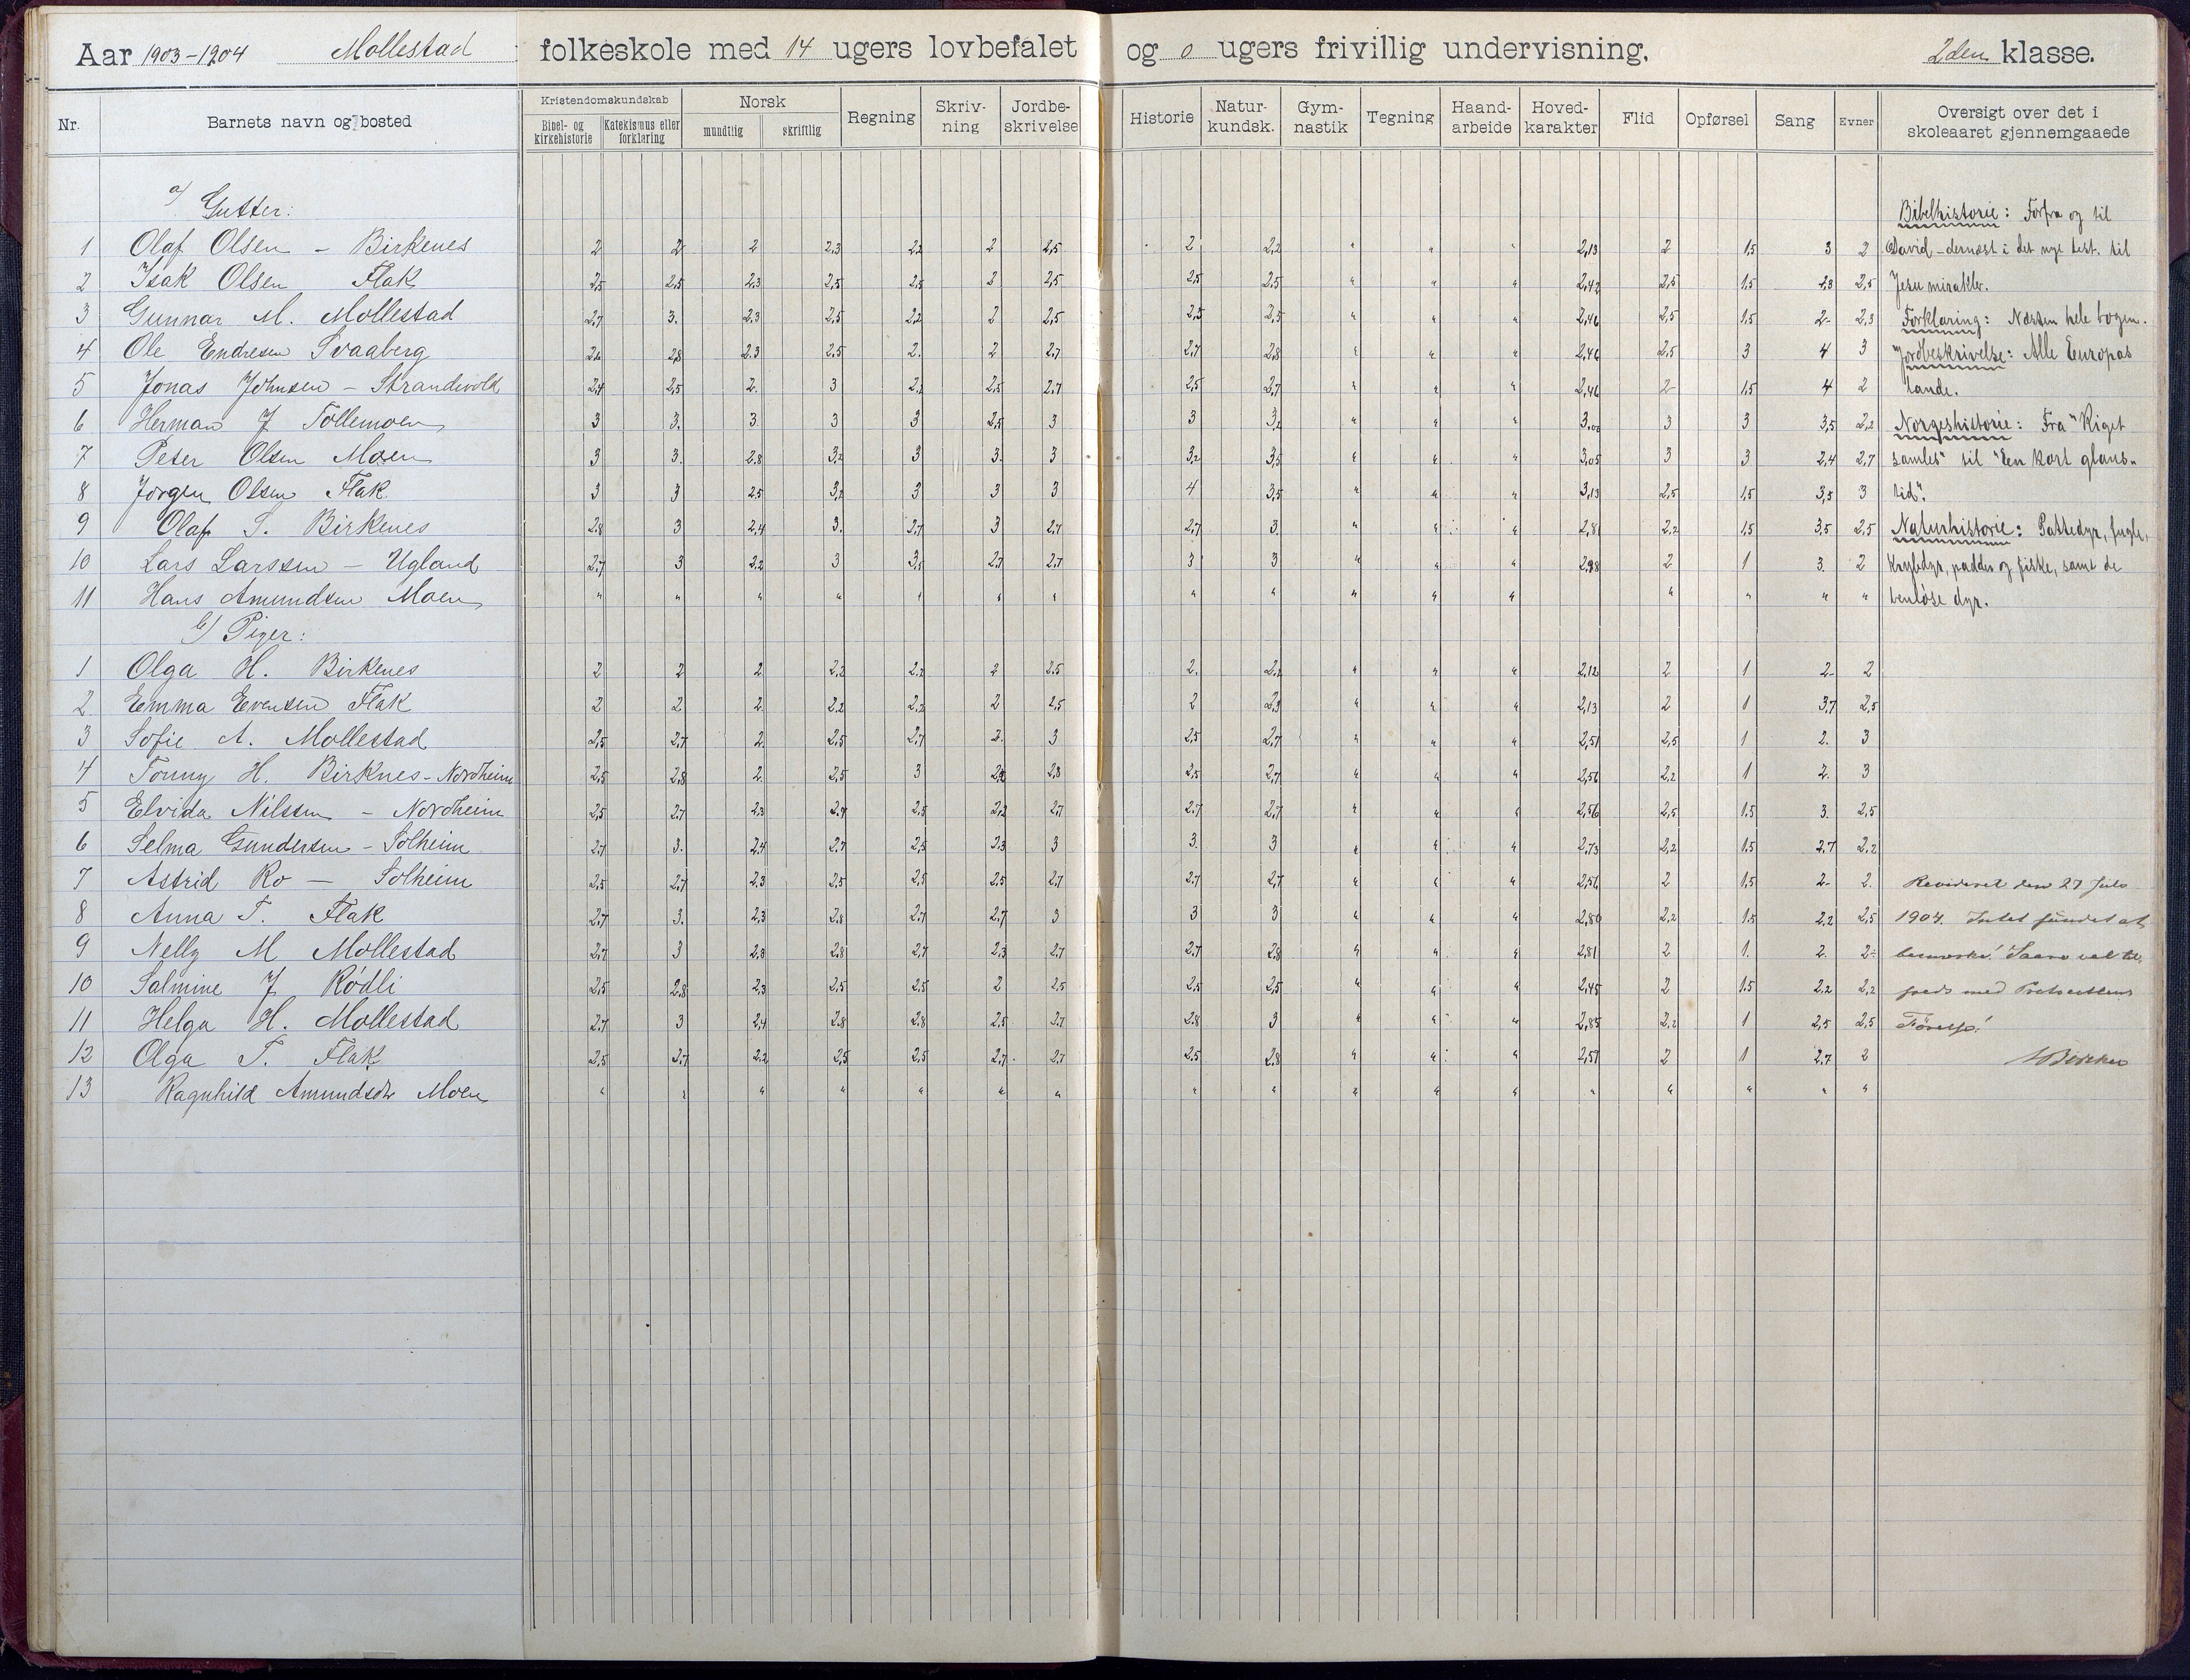 Aar 1903-1904 Mollestad folkeskole med 14 ugers lovbefalet og 0 ugers frivillig undervisning. 2den klasse.
Nr. Barnets navn og bosted Kristendomskundskab Bibel- og kirkehistorie Katekismus eller forklaring Norsk mundtlig skriftlig Regning Skriv-ning Jordbe-skrivelse Historie Natur-kundsk. Gym-nastik Tegning Haand-arbeide Hoved-karakter Flid Opførsel Sang Evner Oversigt over det i skoleaaret gjennemgaaede
a/ Gutter: Bibelhistorie: Forfra og til
1 Olaf Olsen - Birkenes 2 2 2 2,3 2,2 2 2,5 2 2,2 " " " 2,13 2 1,5 3 2 David - dernæst i det nye test. til
2 Isak Olsen Flak 2,5 2,5 2,3 2,5 2,5 2 2,5 2,5 2,5 " " " 2,42 2,5 1,5 2,5 Jesu mirakler.
3 Gunnar M. Mollestad 2,7 3. 2,3 2,5 2,2 2 2,5 2,5 2,5 " " " 2,46 2,5 1,5 2- 2,3 Forklaring: Næsten hele bogen.
4 Ole Endresen Svaaberg 2,6 2,8 2,3 2,5 2. 2 2,7 2,7 2,8 " " " 2,46 2,5 3 4 3 Jordbeskrivelse: Alle Europas
5 Jonas Johnsen - Strandvold 2,4 2,5 2. 3 2,2 2,5 2,7 2,5 2,7 " " " 2,46 2 1,5 4 2 lande.
6 Herman J Tollemoen 3 3. 3. 3 3 2,5 3 3 3,2 " " " 3,00 3 3 3,5 2,2 Norgeshistorie: Fra "Riget
7 Peter Olsen Moen 3 3. 2,8 3,2 3 3. 3 3,2 3,5 " " " 3,05 3 3 2,4 2,7 samles" til "En kort glans-
8 Jørgen Olsen Flak 3 3 2,5 3,2 3 3 3 4 3,5 " " " 3,13 2,5 1,5 3,5 3 tid".
9 Olaf S. Birkenes 2,8 3 2,4 3. 2,7 3 2,7 2,7 3. " " " 2,81 2,2 1,5 3,5 2,5 Naturhistorie: Pattedyr, fugle,
10 Lars Larssen - Ugland 2,7 3 2,2 3 3,5 2,7 2,7 3 3 " " " 2,98 2 1 3. 2 krybdyr, padder og fiske, samt de
11 Hans Amundsen Moen " " " " " " " " " " " " " " " " benløse dyr.
b/ Piger:
1 Olga H. Birkenes 2 2 2 2,2 2,2 2 2,5 2. 2,2 " " " 2,12 2 1 2- 2
2 Emma Evensen Flak 2 2 2 2,2 2,2 2 2,5 2 2,3 " " " 2,13 2 1 3,7 2,5
3 Sofie A. Mollestad 2,5 2,7 2. 2,5 2,7 2. 3 2,5 2,7 " " " 2,51 2,5 1 2. 3
4 Tonny H. Birknes - Nordheim 2,5 2,8 2. 2,5 3 2,2 2,8 2,5 2,7 " " " 2,56 2,2 1 2. 3
5 Elvida Nilssen - Nordheim 2,5 2,7 2,3 2,4 2,5 2,2 2,7 2,7 2,7 " " " 2,56 2,5 1,5 3. 2,5
6 Selma Gundersen - Solheim 2,7 3. 2,4 2,7 2,5 2,3 3 3. 3 " " " 2,73 2,2 1,5 2,7 2,2
7 Astrid Ro - Solheim 2,5 2,7 2,3 2,5 2,5 2,5 2,7 2,7 2,7 " " " 2,56 2 1,5 2- 2. Revideret den 27 Juli
8 Anna T. Flak 2,7 3. 2,3 2,8 2,7 2,7 3 3 3 " " " 2,80 2,2 1,5 2,2 2,5 1904. Intet fundet at
9 Nelly M Mollestad 2,7 3 2,8 2,8 2,7 2,3 2,7 2,7 2,8 " " " 2,81 2 1. 2. 2- bemærke! Saare vel til
10 Salmine J Rødli 2,5 2,8 2,3 2,5 2,5 2 2,5 2,5 2,5 " " " 2,45 2 1,5 2,2 2,2 freds med
11 Helga H. Mollestad 2,7 3 2,4 2,8 2,8 2,5 2,7 2,8 3 " " " 2,85 2,2 1 2,5 2,5
12 Olga T. Flak 2,5 2,7 2,2 2,5 2,5 2,7 2,7 2,5 2,8 " " " 2,57 2 1 2,7 2
13 Ragnhild Amundsdtr Moen " " " " " " " " " " " " " " " " "